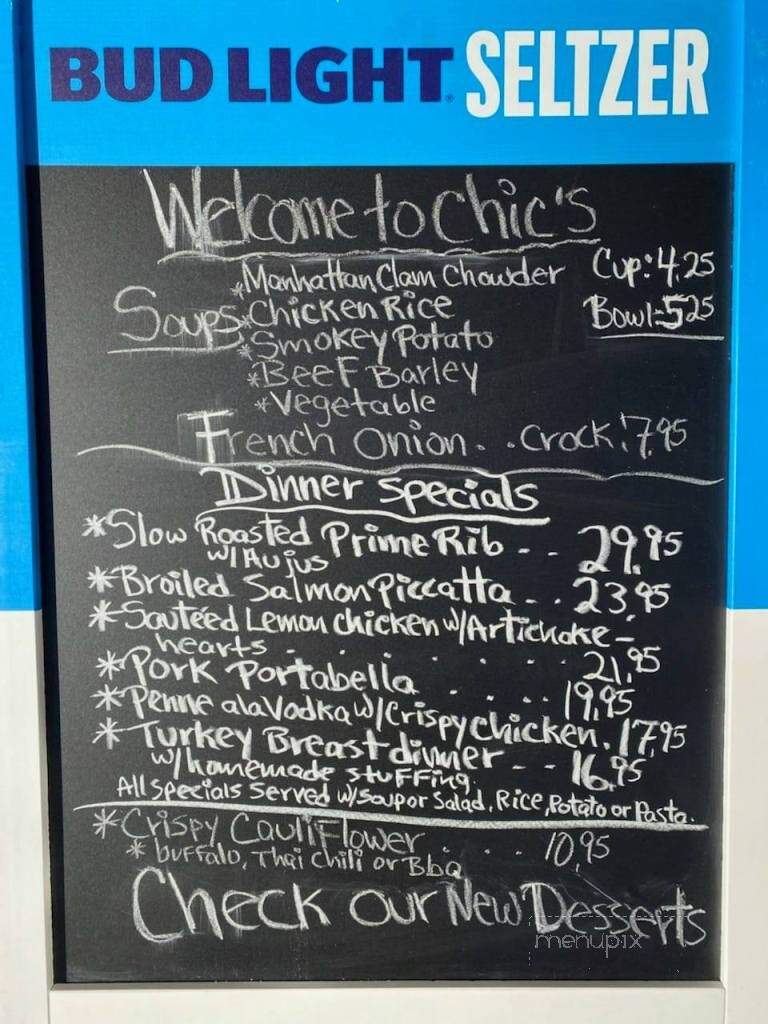 BUD LIGHT SELTZER
Welcome to Chic's
*Manhattan Clam Chowder Cup: 4.25
Soups *Chicken Rice Bowl: 5.25
*Smokey Potato
*Beef Barley
*Vegetable
French Onion . . Crock: 7.95
Dinner Specials
*Slow Roasted Prime Rib - - 29.95
w/ Au jus
*Broiled Salmon Piccatta . . 23.95
*Sautéed Lemon Chicken w/ Artichoke-
hearts . . . . . . 21.95
*Pork Portabella . . . . 19.95
*Penne ala Vodka w/ Crispy Chicken . 17.95
*Turkey Breast dinner - - 16.95
w/ homemade stuffing.
All specials served w/ soup or salad, Rice, Potato or Pasta.
*Crispy Cauliflower . . . . 10.95
* buffalo, Thai Chili or Bbq
Check our New Desserts
menupix